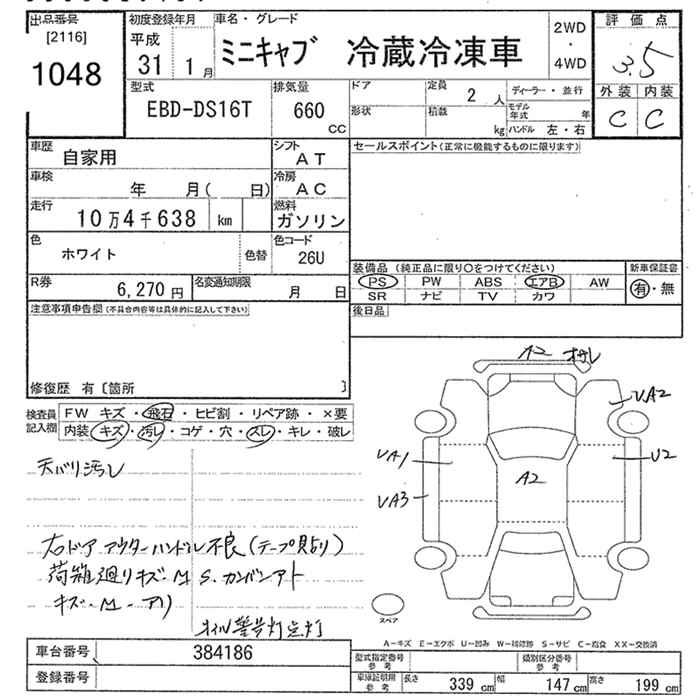 出品番号
[2116]
1048
初度登録年月
平成
31 1月
車名・グレード
ミニキャブ 冷蔵冷凍車
2WD
・
4WD
評価点
3.5
外装 内装
C C
型式
EBD-DS16T
排気量
660
CC
ドア
定員
2 人
ディーラー・並行
形状
積載
kg
モデル年式 年
ハンドル 左・右
車歴
自家用
シフト
AT
セールスポイント(正常に機能するものに限ります)
車検
年 月( 日)
冷房
AC
走行
10万4千638 km
燃料
ガソリン
色
ホワイト
色替
色コード
26U
装備品 (純正品に限り○をつけてください)
新車保証書
PS PW ABS エアB AW
SR ナビ TV カワ
有・無
R券
6,270 円
名変通知期限
月 日
後日品
注意事項申告欄(不具合内容等は具体的に記入して下さい)
修復歴 有〔箇所 〕
検査員記入欄
FW キズ・飛石・ヒビ割・リペア跡・×要
内装 キズ・汚レ・コゲ・穴・スレ・キレ・破レ
天バリ汚レ
右ドアアウターハンドル不良(テープ貼り)
荷箱廻りキズ・M S.カンバンアト
キズ・M・アリ
オイル警告灯点灯
A2
UA2
UA1
U2
A2
UA3
スペア
A-キズ E-エクボ U-凹み W-補修跡 S-サビ C-腐食 XX-交換済
車台番号
384186
登録番号
型式指定番号
参考
類別区分番号
参考
車庫証明用
参考
長さ 339 cm 幅 147 cm 高さ 199 cm